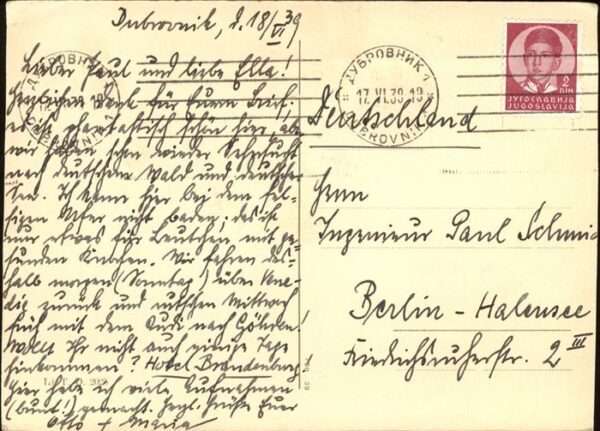 Dubrovnik, d. 18/VI 39
Lieber Paul und liebe Ella!
Herzlichen Dank für Euern Brief,
es ist phantastisch schön hier, aber
wir haben schon wieder Sehnsucht
nach deutschem Wald und deutscher
See. Ich kann hier bei dem fel-
sigen Ufer nicht baden; das ist
nur etwas für Leutchen mit ge-
sunden Knochen. Wir fahren des-
halb morgen (Sonntag) über Vene-
dig zurück und rutschen Mittwoch
früh mit dem Rudi nach Göhren!
Wollt Ihr nicht auch einige Tage
hinkommen? Hotel Brandenburg
Hier habe ich viele Aufnahmen
(bunt!) gemacht. Herzl. Grüße Euer
Otto + Maria
ДУБРОВНИК 1
17.VI.39.18
DUBROVNIK 1
2
ДИН
ЈУГОСЛАВИЈА
JUGOSLAVIJA
Deutschland
Herrn
Ingenieur Paul Schmi
Berlin - Halensee
Friedrichsruherstr. 2 III